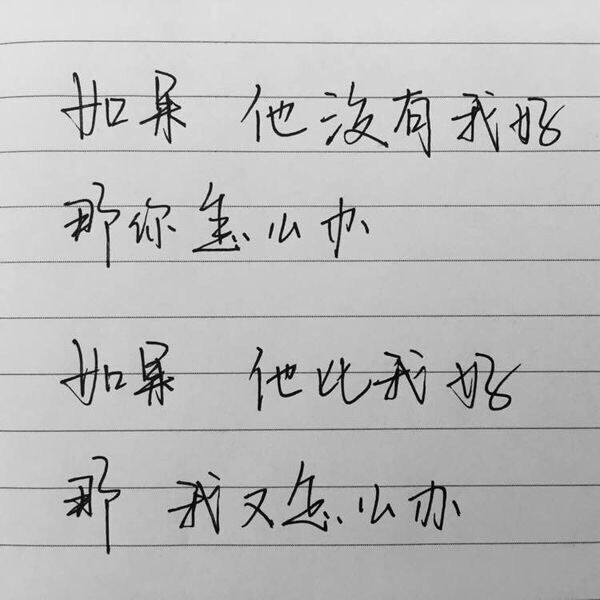 如果 他没有我好
那你怎么办
如果 他比我好
那 我又怎么办